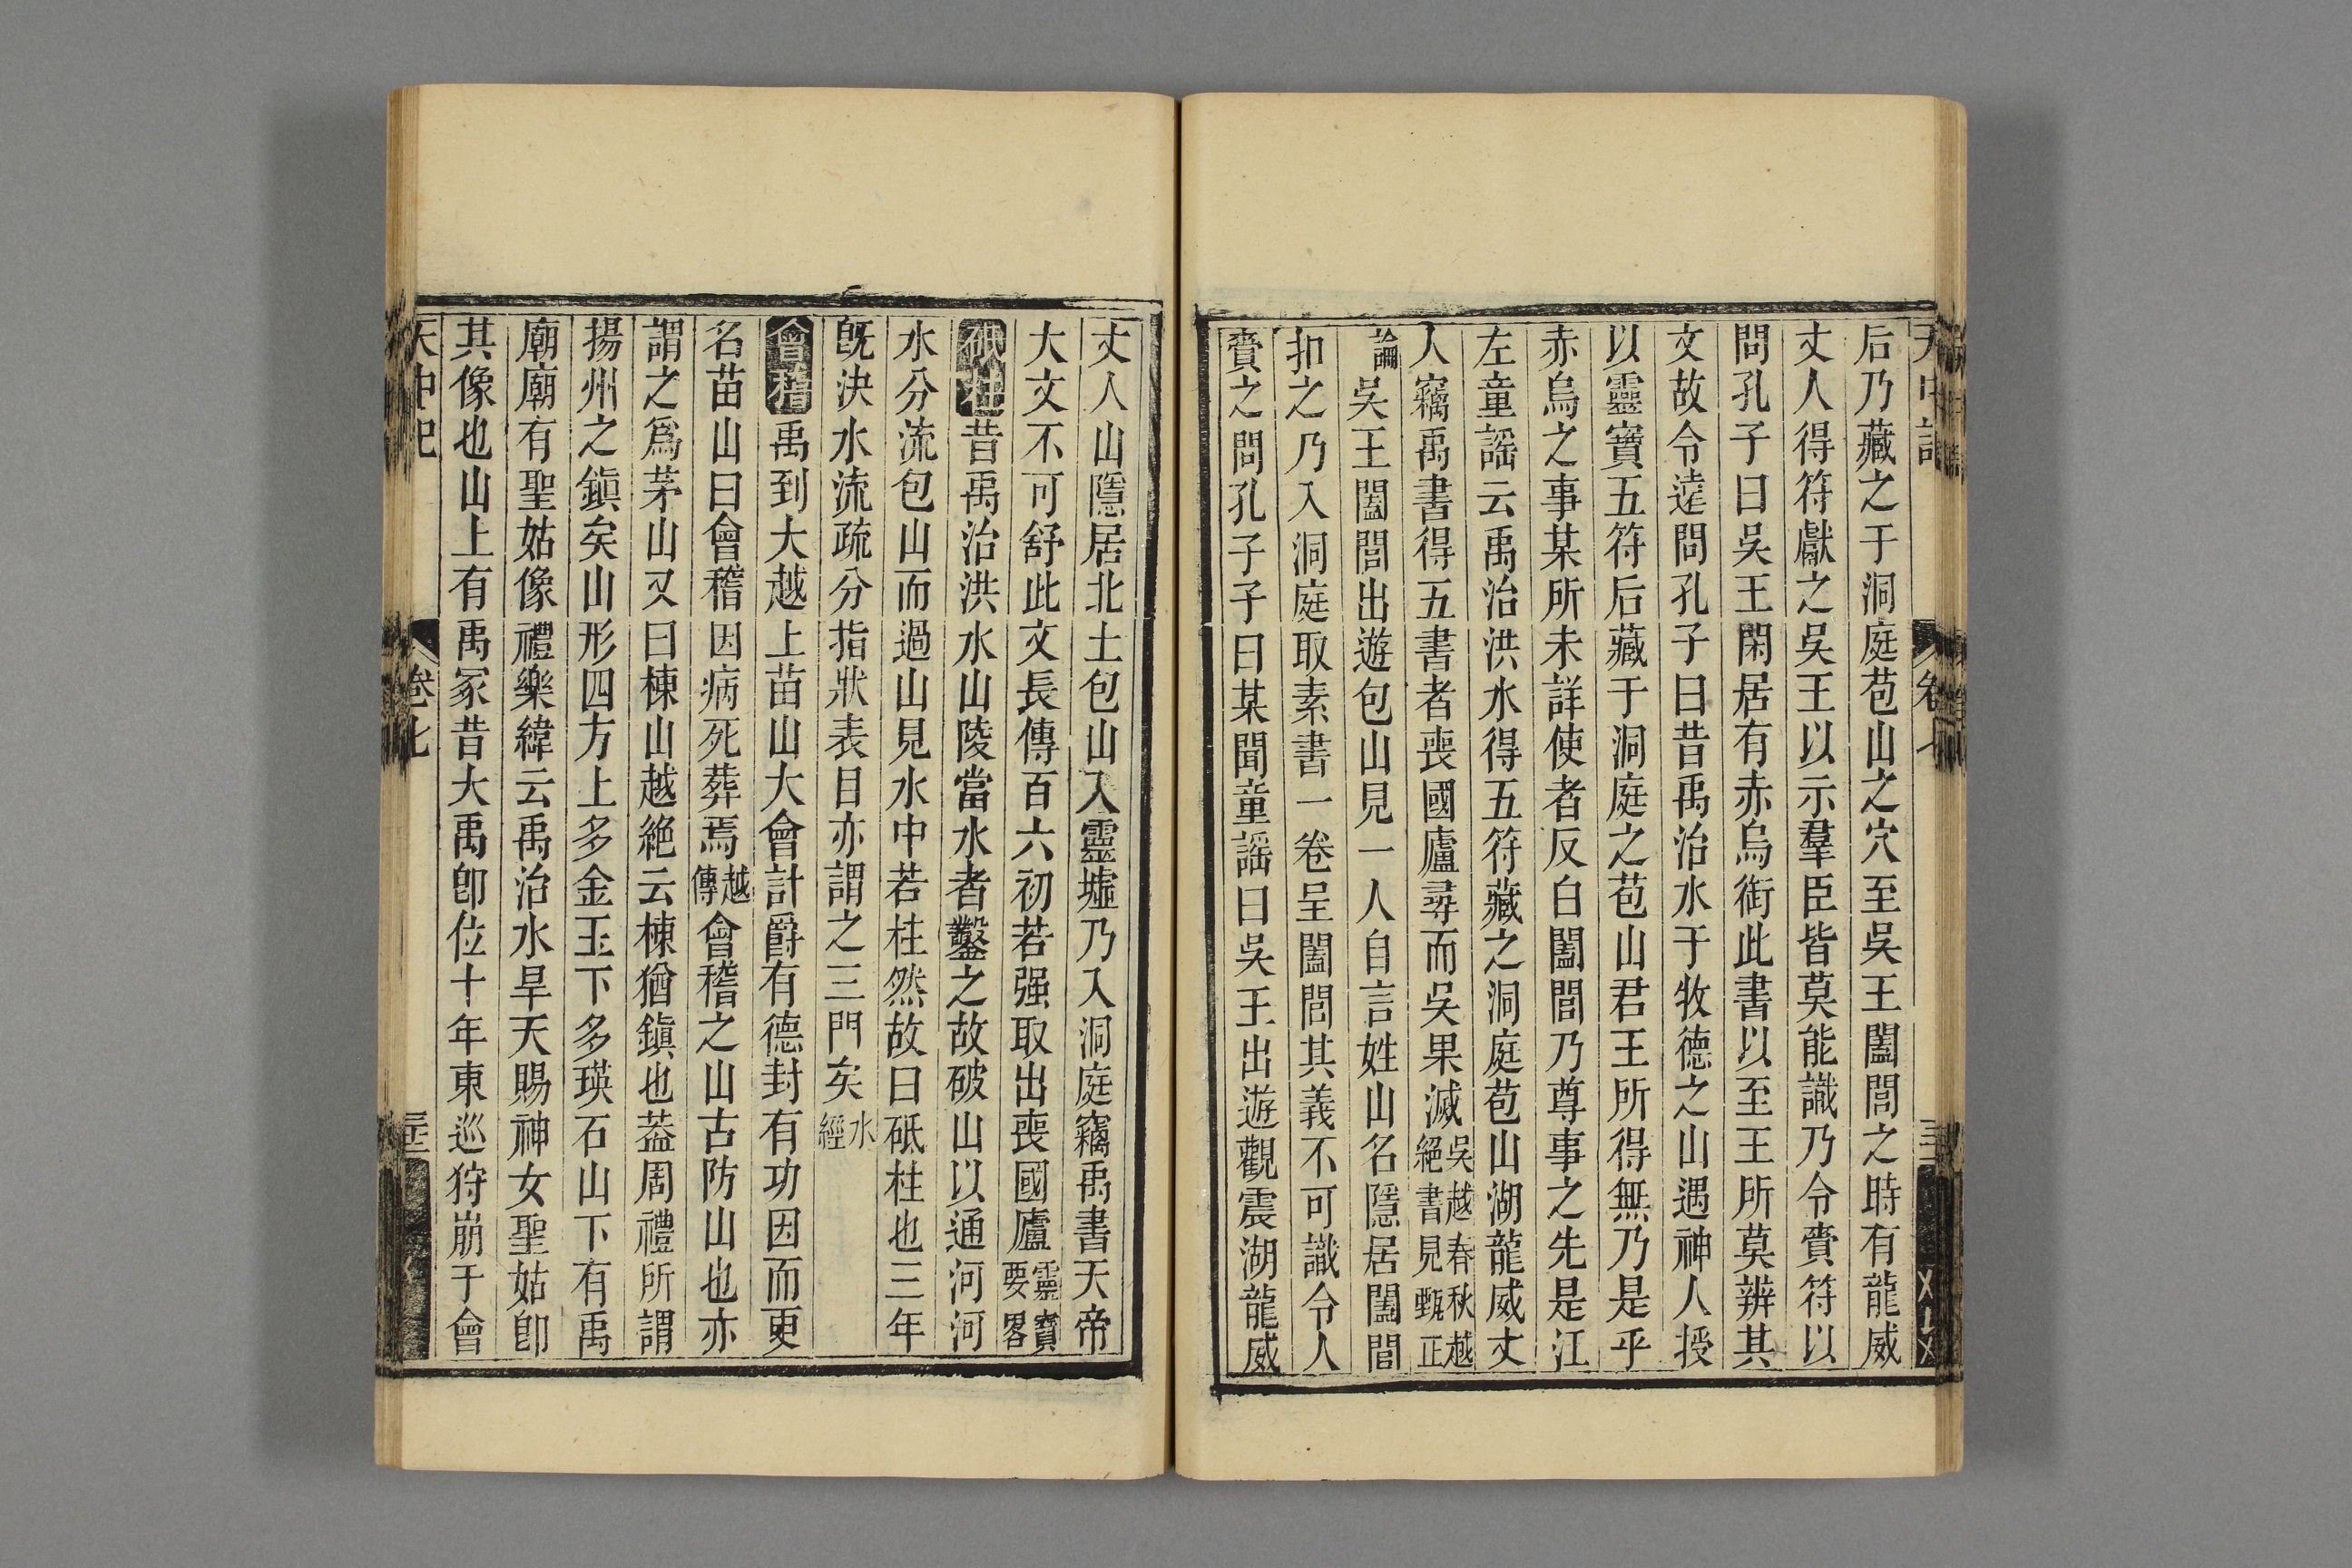 天中記 卷七
后乃藏之于洞庭苞山之穴至吳王闔閭之時有龍威
丈人得符獻之吳王以示羣臣皆莫能識乃令賫符以
問孔子曰吳王閑居有赤烏銜此書以至王所莫辨其
文故令遠問孔子曰昔禹治水于牧德之山遇神人授
以靈寶五符后藏于洞庭之苞山君王所得無乃是乎
赤烏之事某所未詳使者反白闔閭乃尊事之先是江
左童謡云禹治洪水得五符藏之洞庭苞山湖龍威丈
人竊禹書得五書者喪國廬尋而吳果滅吳越春秋越絕書見甄正
論吳王闔閭出遊包山見一人自言姓山名隱居闔閭
扣之乃入洞庭取素書一卷呈闔閭其義不可識令人
賫之問孔子子曰某聞童謡曰吳王出遊觀震湖龍威
丈人山隱居北土包山入靈墟乃入洞庭竊禹書天帝
大文不可舒此文長傳百六初若强取出喪國廬靈寶要畧
砥柱昔禹治洪水山陵當水者鑿之故破山以通河河
水分流包山而過山見水中若柱然故曰砥柱也三年
旣決水流疏分指狀表目亦謂之三門矣水經
會稽禹到大越上苗山大會計爵有德封有功因而更
名苗山曰會稽因病死葬焉越傳會稽之山古防山也亦
謂之爲茅山又曰棟山越絕云棟猶鎭也蓋周禮所謂
揚州之鎭矣山形四方上多金玉下多瑛石山下有禹
廟廟有聖姑像禮樂緯云禹治水旱天賜神女聖姑卽
其像也山上有禹冢昔大禹卽位十年東巡狩崩于會
天中記 卷七